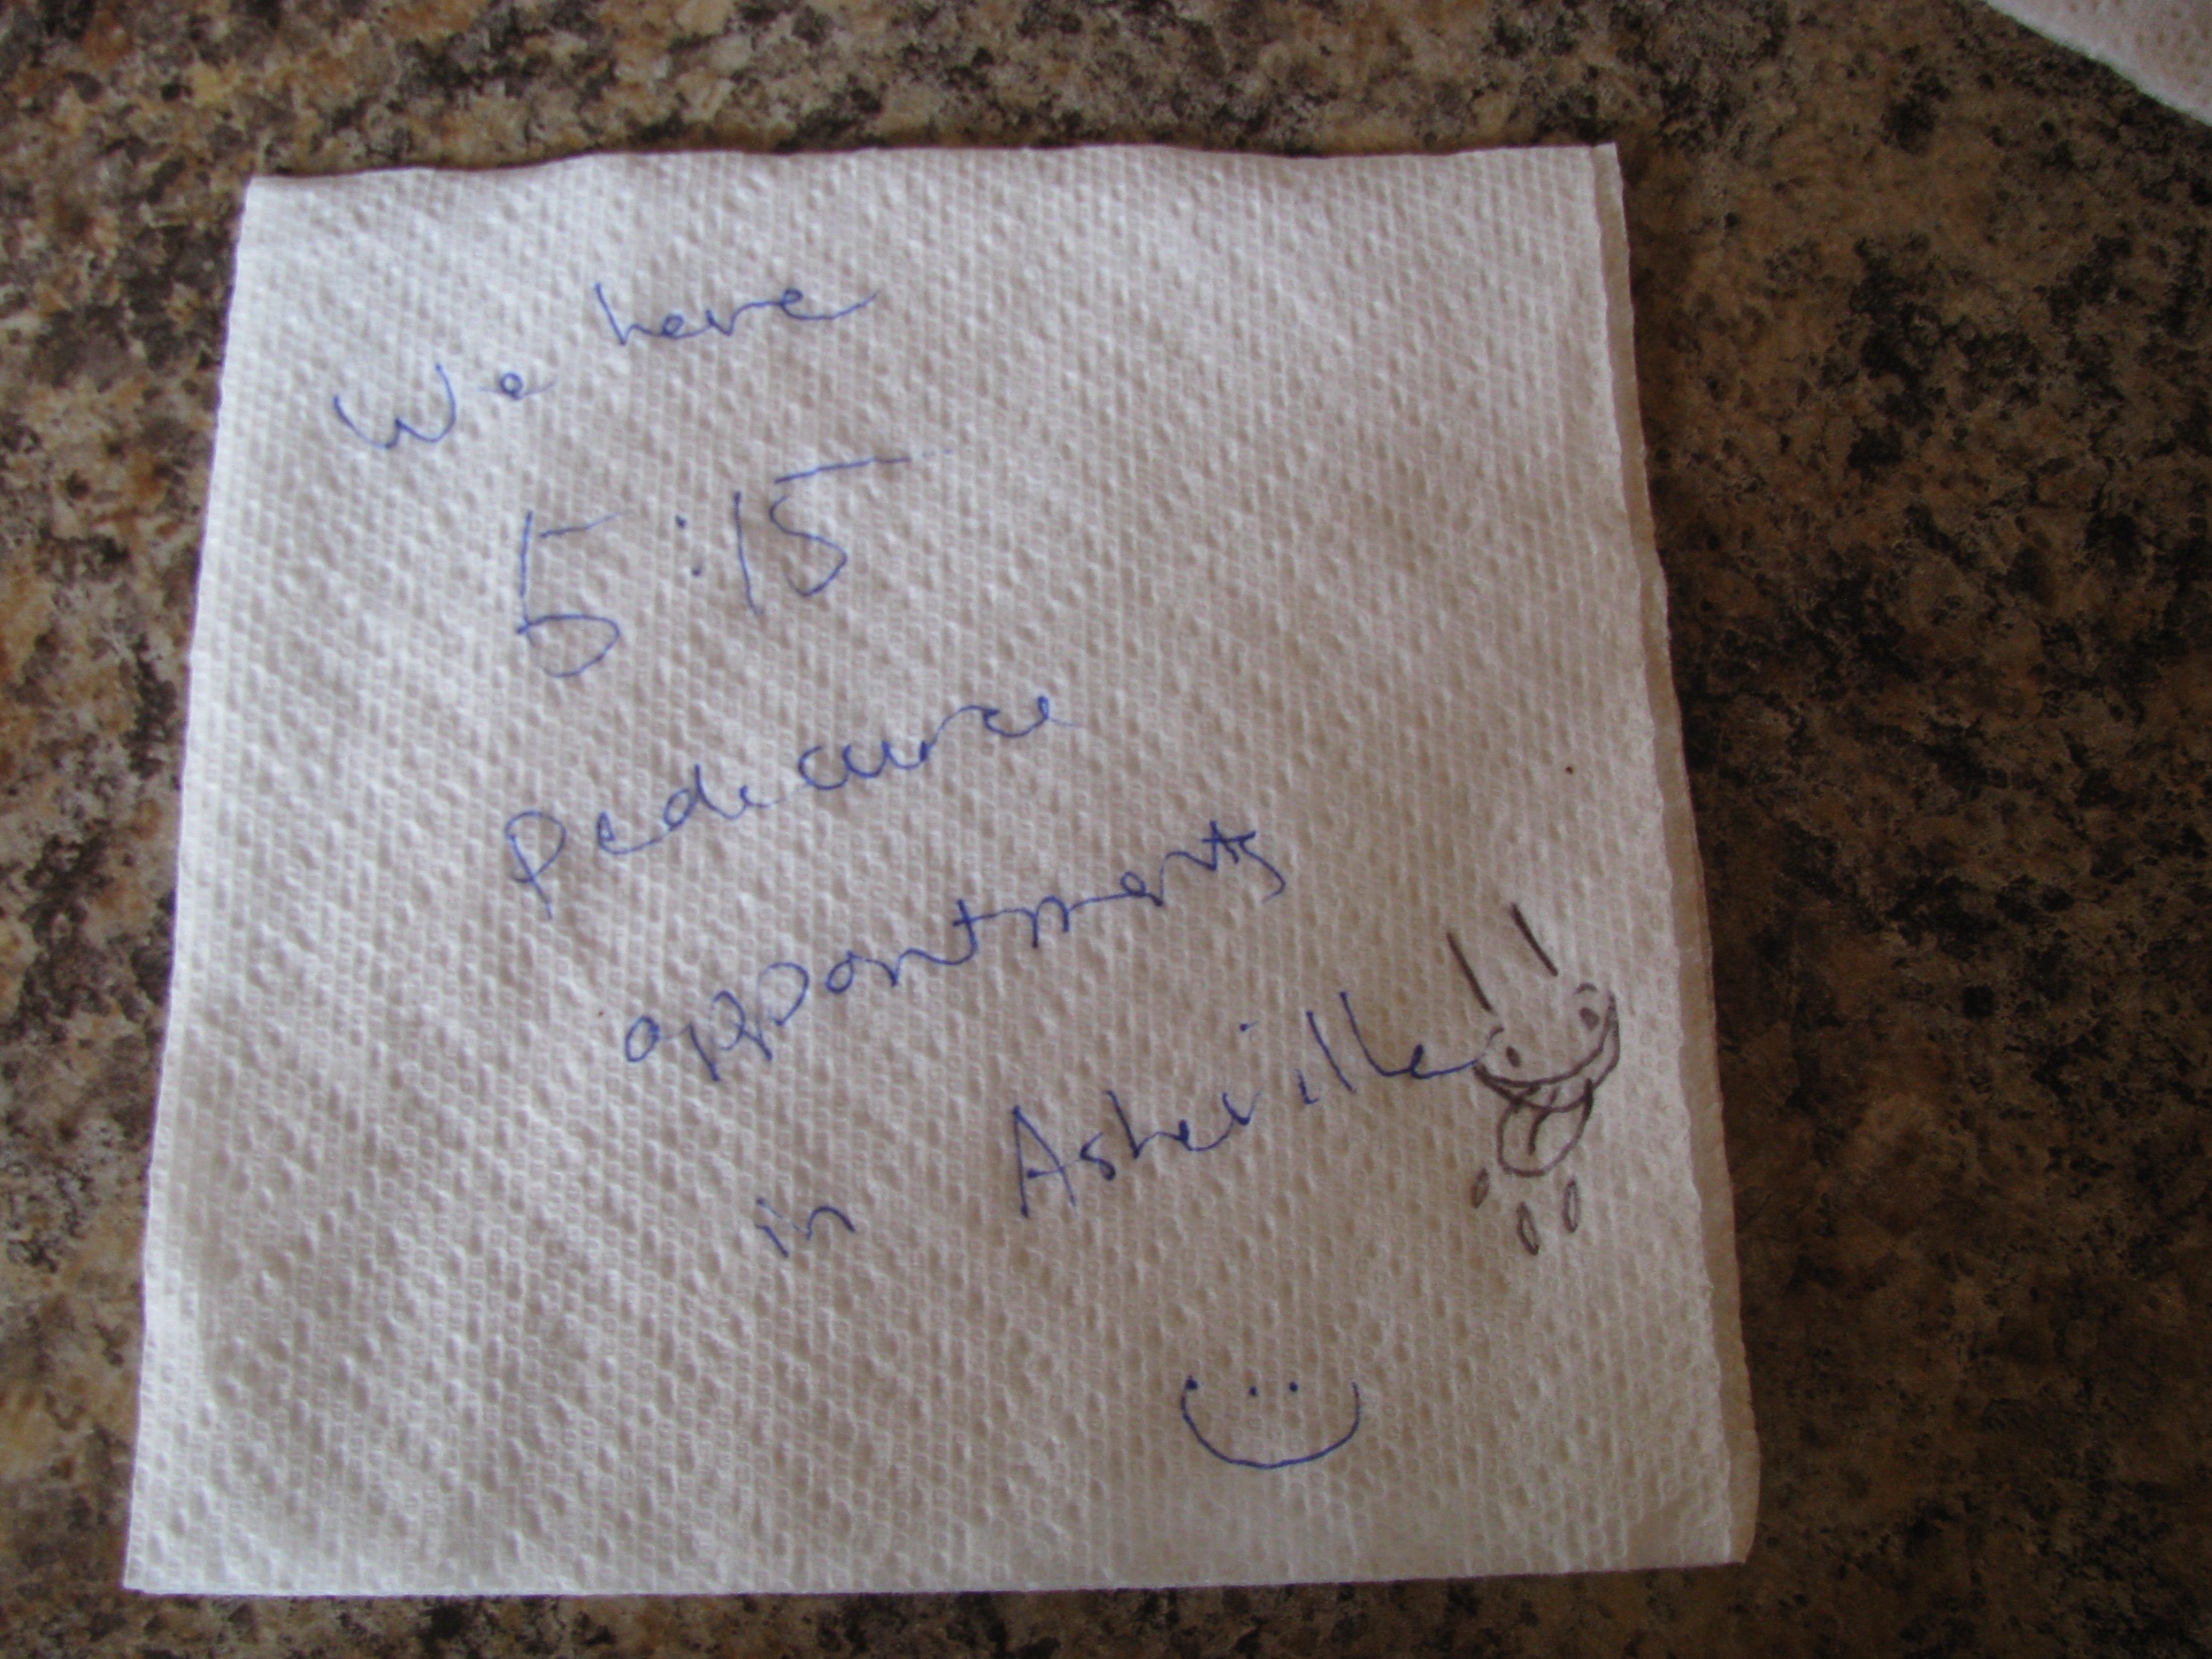 We have
5:15
pedicure
appointments
in Asheville